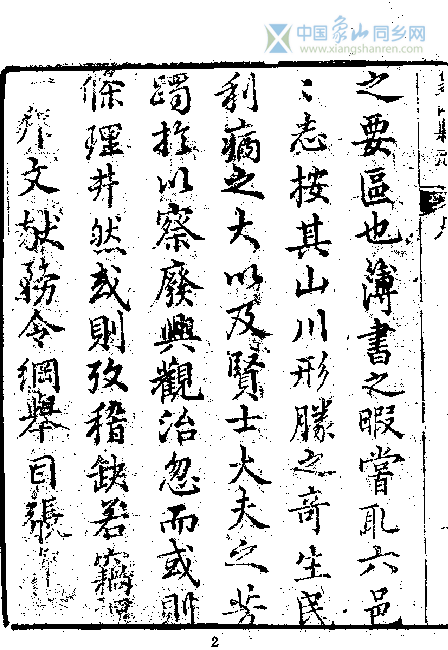 中国象山同乡网
www.xiangshanren.com
之要區也薄書之暇嘗取六邑
〻志按其山川形勝之奇生民
利病之大以及賢士大夫之芳
躅於以察廢興觀治忽而或則
條理井然或則攷稽缺若竊
文献務令綱舉目張
2